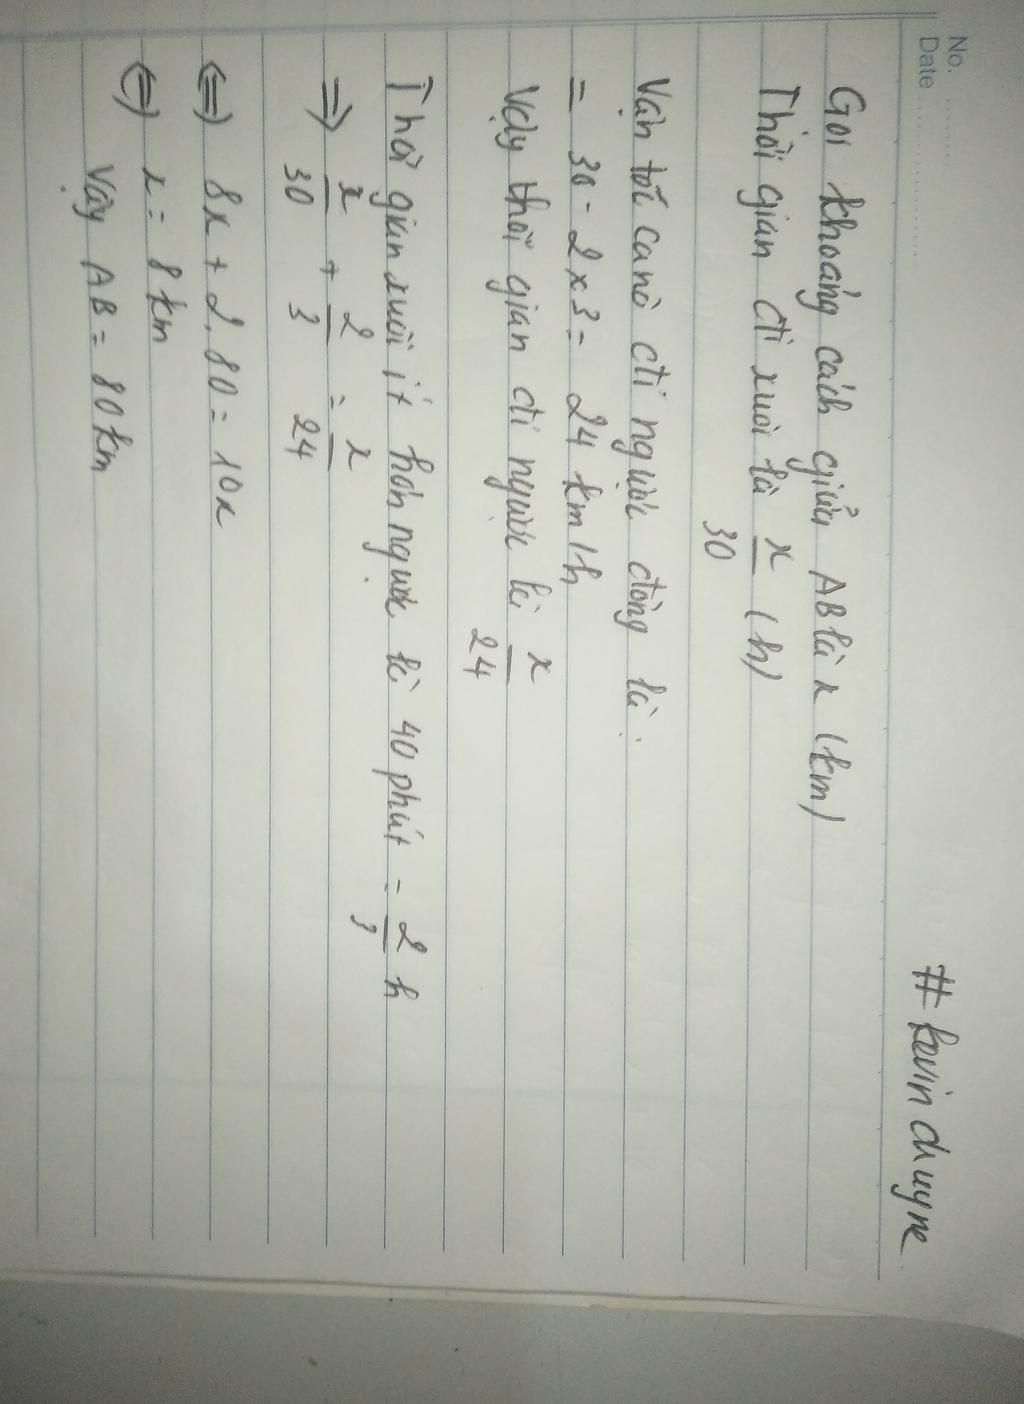 No.
Date
# kevin duyne
Gọi khoảng cách giữa AB là x (km)
Thời gian đi xuôi là x/30 (h)
Vận tốc canô đi ngược dòng là:
= 30 - 2 x 3 = 24 km/h
Vậy thời gian đi ngược là x/24
Thời gian xuôi ít hơn ngược là 40 phút = 2/3 h
=> x/30 + 2/3 = x/24
<=> 8x + 2.80 = 10x
<=> x = 8 km
Vậy AB = 80km